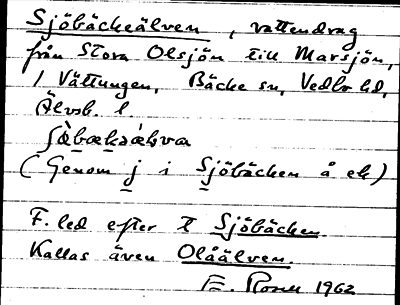 Sjöbäckeälven, vattendrag
från Stora Olsjön till Marsjön,
/ Vättungen, Bäcke sn, Vedbo hd,
Älvsb. l.
(Genom j i Sjöbäcken å ek)
F. led efter t Sjöbäcken
Kallas även Olåälven.
E. Rosell 1962